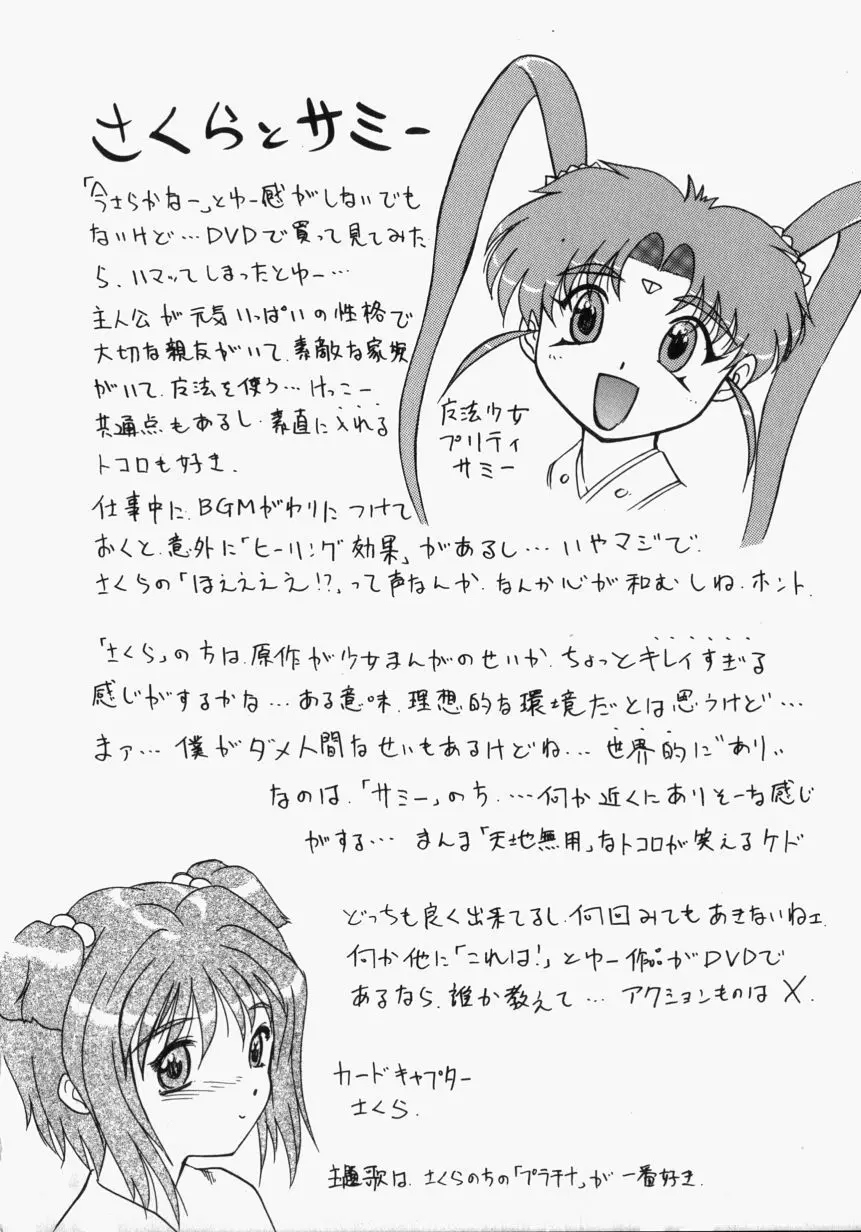 さくらとサミー
「今さらかなー」とゆー感がしないでも
ないけど…DVDで買って見てみた
ら、ハマッてしまったとゆー…
主人公が元気いっぱいの性格で
大切な親友がいて、素敵な家族
がいて、魔法を使う…けっこー
共通点もあるし、素直に入れる
トコロも好き．
魔法少女
プリティ
サミー
仕事中に、BGMがわりにつけて
おくと、意外に「ヒーリング効果」があるし…いやマジで．
さくらの「ほええええ!?」って声なんか、なんか心が和むしね、ホント．
「さくら」の方は、原作が少女まんがのせいか、ちょっとキレイすぎる
感じがするかな…ある意味、理想的な環境だとは思うけど…
まァ…僕がダメ人間なせいもあるけどね…世界的に〝あり〟
なのは、「サミー」のち、…何か近くにありそーな感じ
がする…まんま「天地無用」なトコロが笑えるケド
どっちも良く出来てるし、何回みてもあきないねェ．
何か他に「これは!」とゆー作品がDVDで
あるなら、誰か教えて…アクションものは×．
カードキャプター
さくら．
主題歌は、さくらのちの「プラチナ」が一番好き．